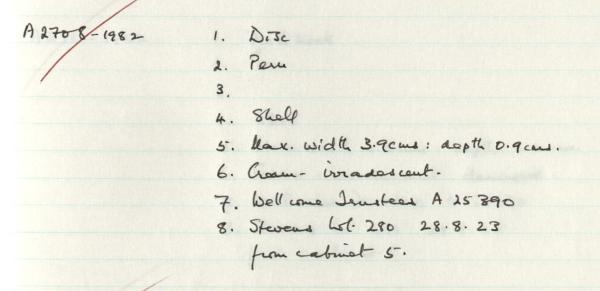 A2708-1982 1. Disc
2. Peru
3.
4. Shell
5. Max. width 3.9cms: depth 0.9cms.
6. Cream - irradescent.
7. Wellcome Trustees A 25390
8. Stevens Lot. 280 28.8.23
from cabinet 5.